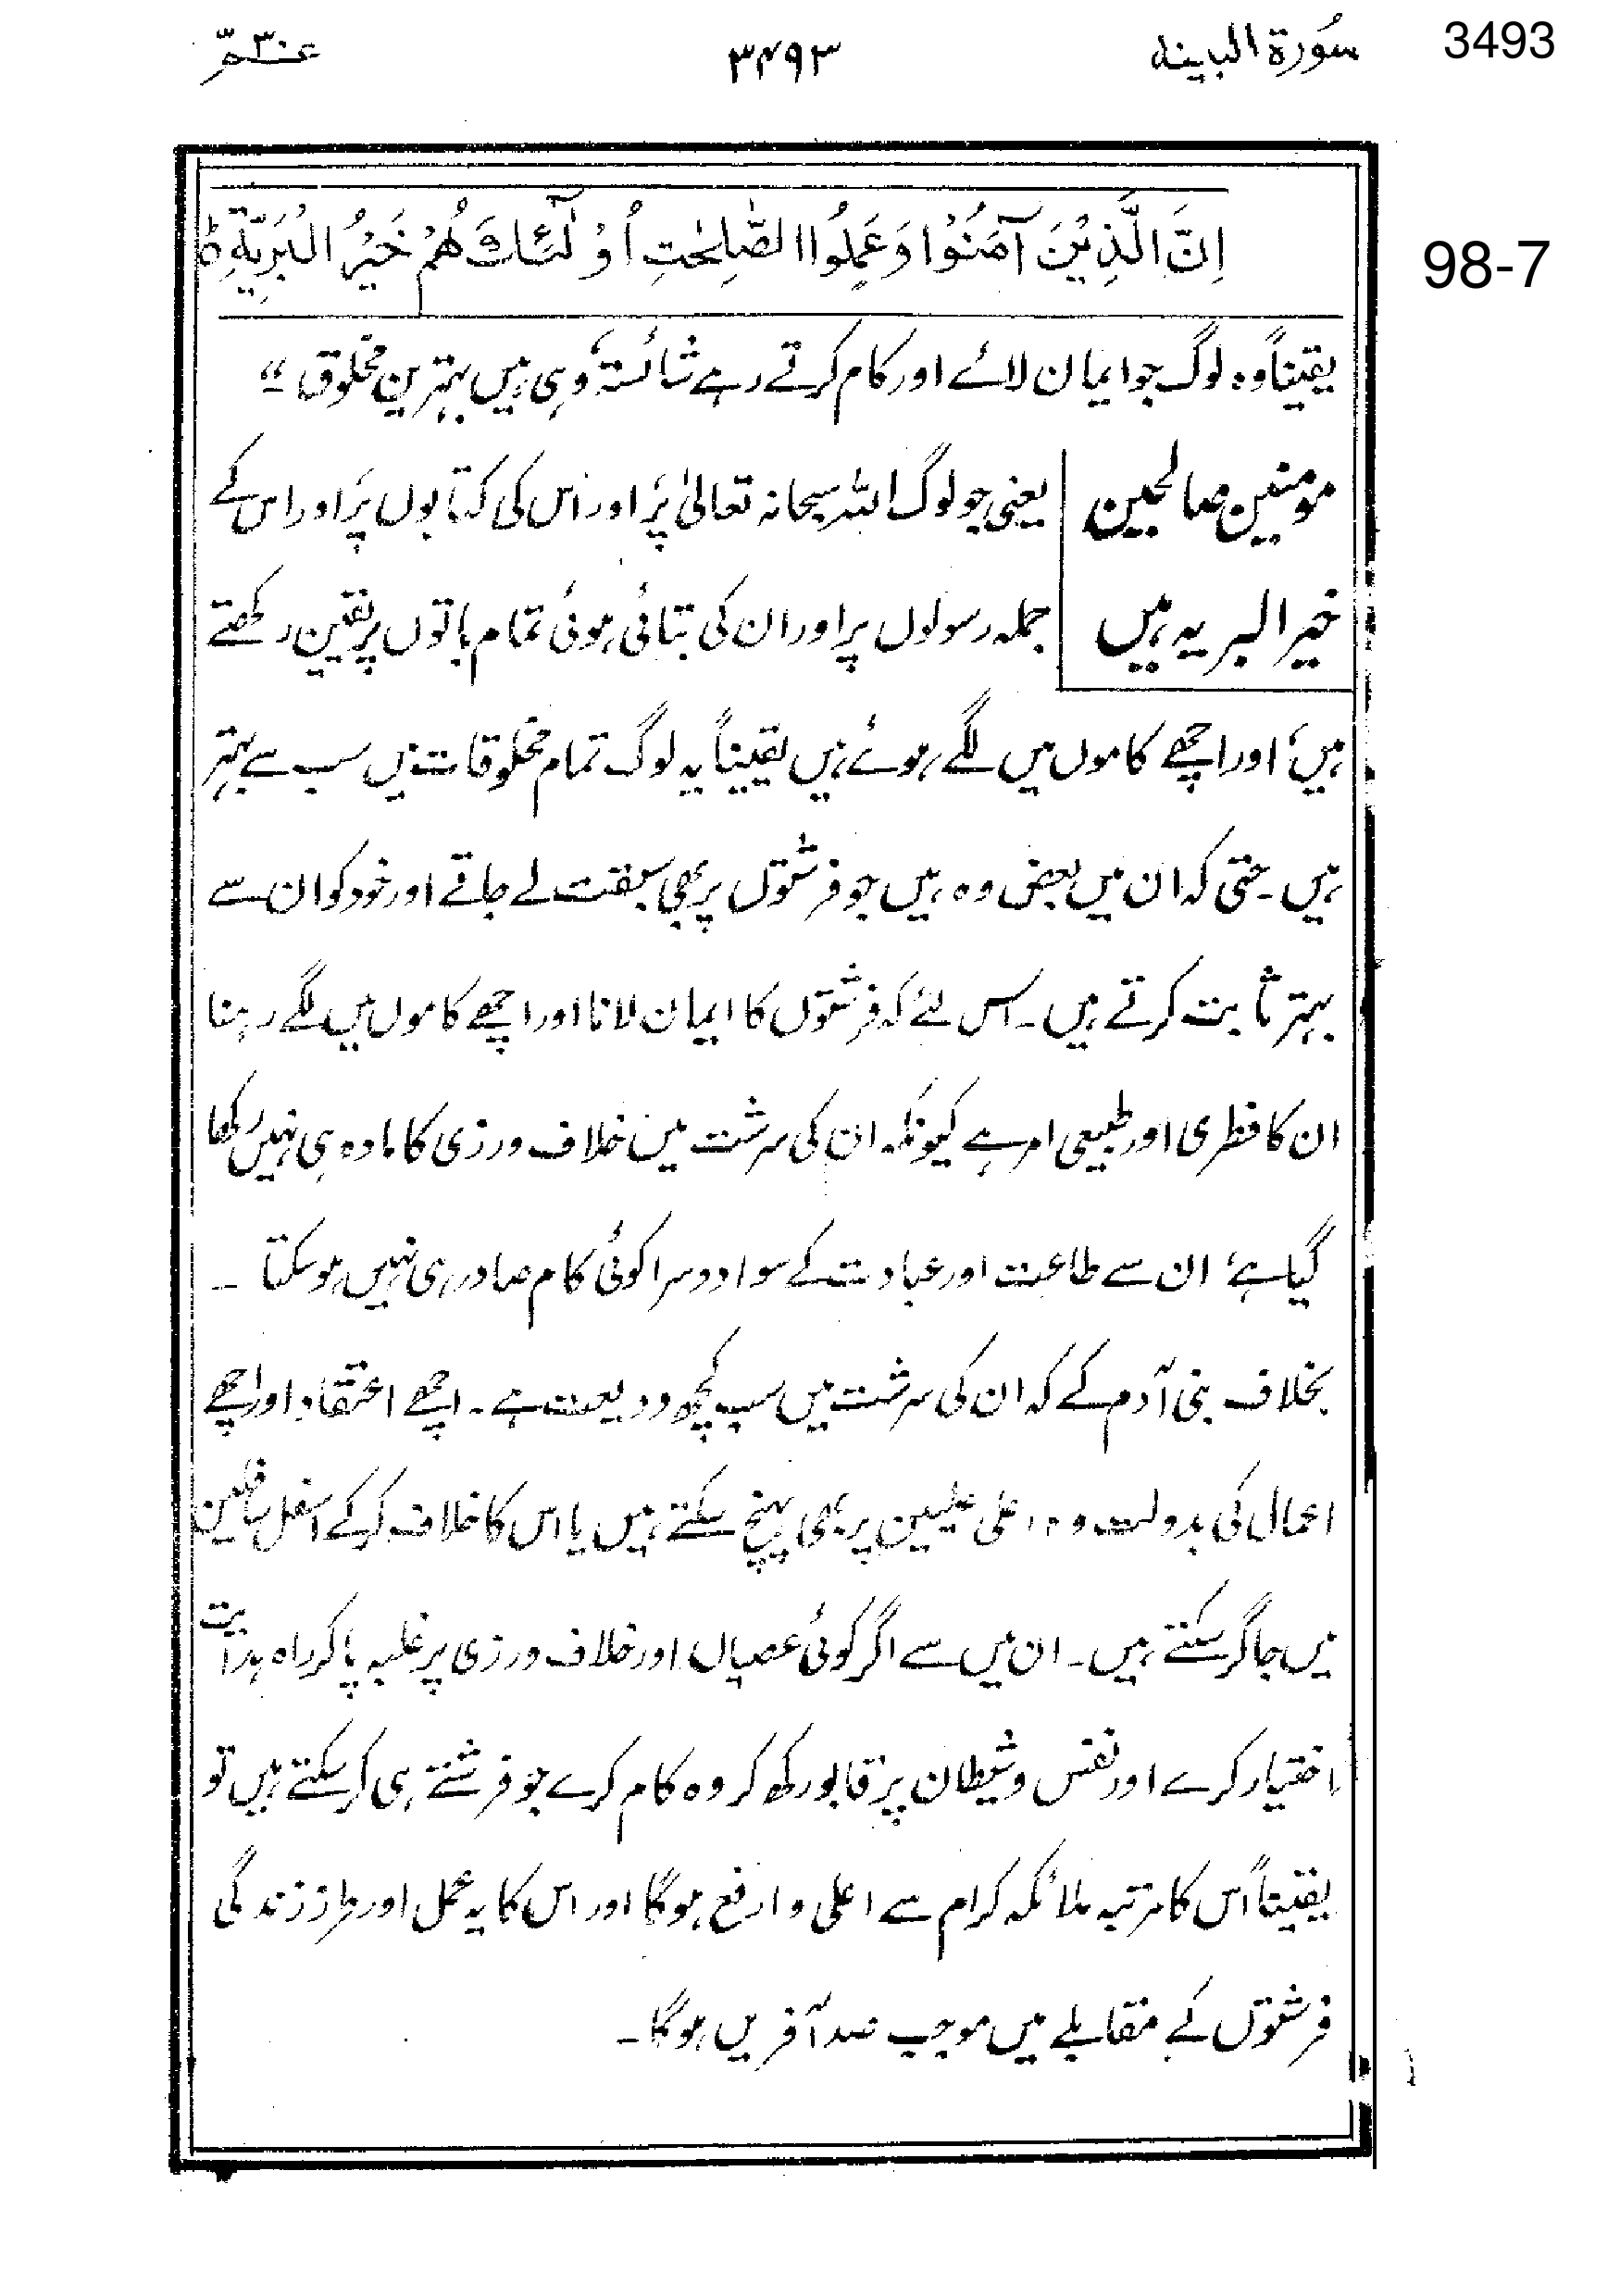 3493
سُورة البینه
۳۴۹۳
عمّ ۳۰
اِنَّ الَّذِیْنَ آمَنُوْا وَعَمِلُوا الصّٰلِحٰتِ اُوْلٰٓئِكَ هُمْ خَیْرُ الْبَرِیَّةِ ط
98-7
یقیناً وہ لوگ جو ایمان لائے اور کام کرتے رہے شائستہ، وہی ہیں بہترین مخلوق ؎"
مومنین صالحین
خیر البریہ ہیں
یعنی جو لوگ اللہ سبحانہ تعالیٰ پر، اور اس کی کتابوں پر، اور اس کے
جملہ رسولوں پر اور ان کی بتائی ہوئی تمام باتوں پر یقین رکھتے
ہیں، اور اچھے کاموں میں لگے ہوئے ہیں یقیناً یہ لوگ تمام مخلوقات میں سب سے بہتر
ہیں۔ حتی کہ ان میں بعض وہ ہیں جو فرشتوں پر بھی سبقت لے جاتے اور خود کو ان سے
بہتر ثابت کرتے ہیں۔ اس لئے کہ فرشتوں کا ایمان لانا اور اچھے کاموں میں لگے رہنا
ان کا فطری اور طبیعی امر ہے کیونکہ ان کی سرشت میں خلاف ورزی کا مادہ ہی نہیں رکھا
گیا ہے، ان سے طاعت اور عبادت کے سوا دوسرا کوئی کام صادر ہی نہیں ہوسکتا ۔
بخلاف بنی آدم کے کہ ان کی سرشت میں سب کچھ ودیعت ہے۔ اچھے اعتقاد اور اچھے
اعمال کی بدولت وہ اعلی علیین پر بھی پہنچ سکتے ہیں یا اس کا خلاف کرکے اسفل سافلین
میں جاگر سکتے ہیں۔ ان میں سے اگر کوئی عصیاں اور خلاف ورزی پر غلبہ پاکر راہ ہدایت
اختیار کرے اور نفس و شیطان پر قابو رکھ کر وہ کام کرے جو فرشتے ہی کرسکتے ہیں تو
یقیناً اس کا مرتبہ ملائکہ کرام سے اعلی و ارفع ہوگا اور اس کا یہ عمل اور طرز زندگی
فرشتوں کے مقابلے میں موجب صد آفریں ہوگا۔